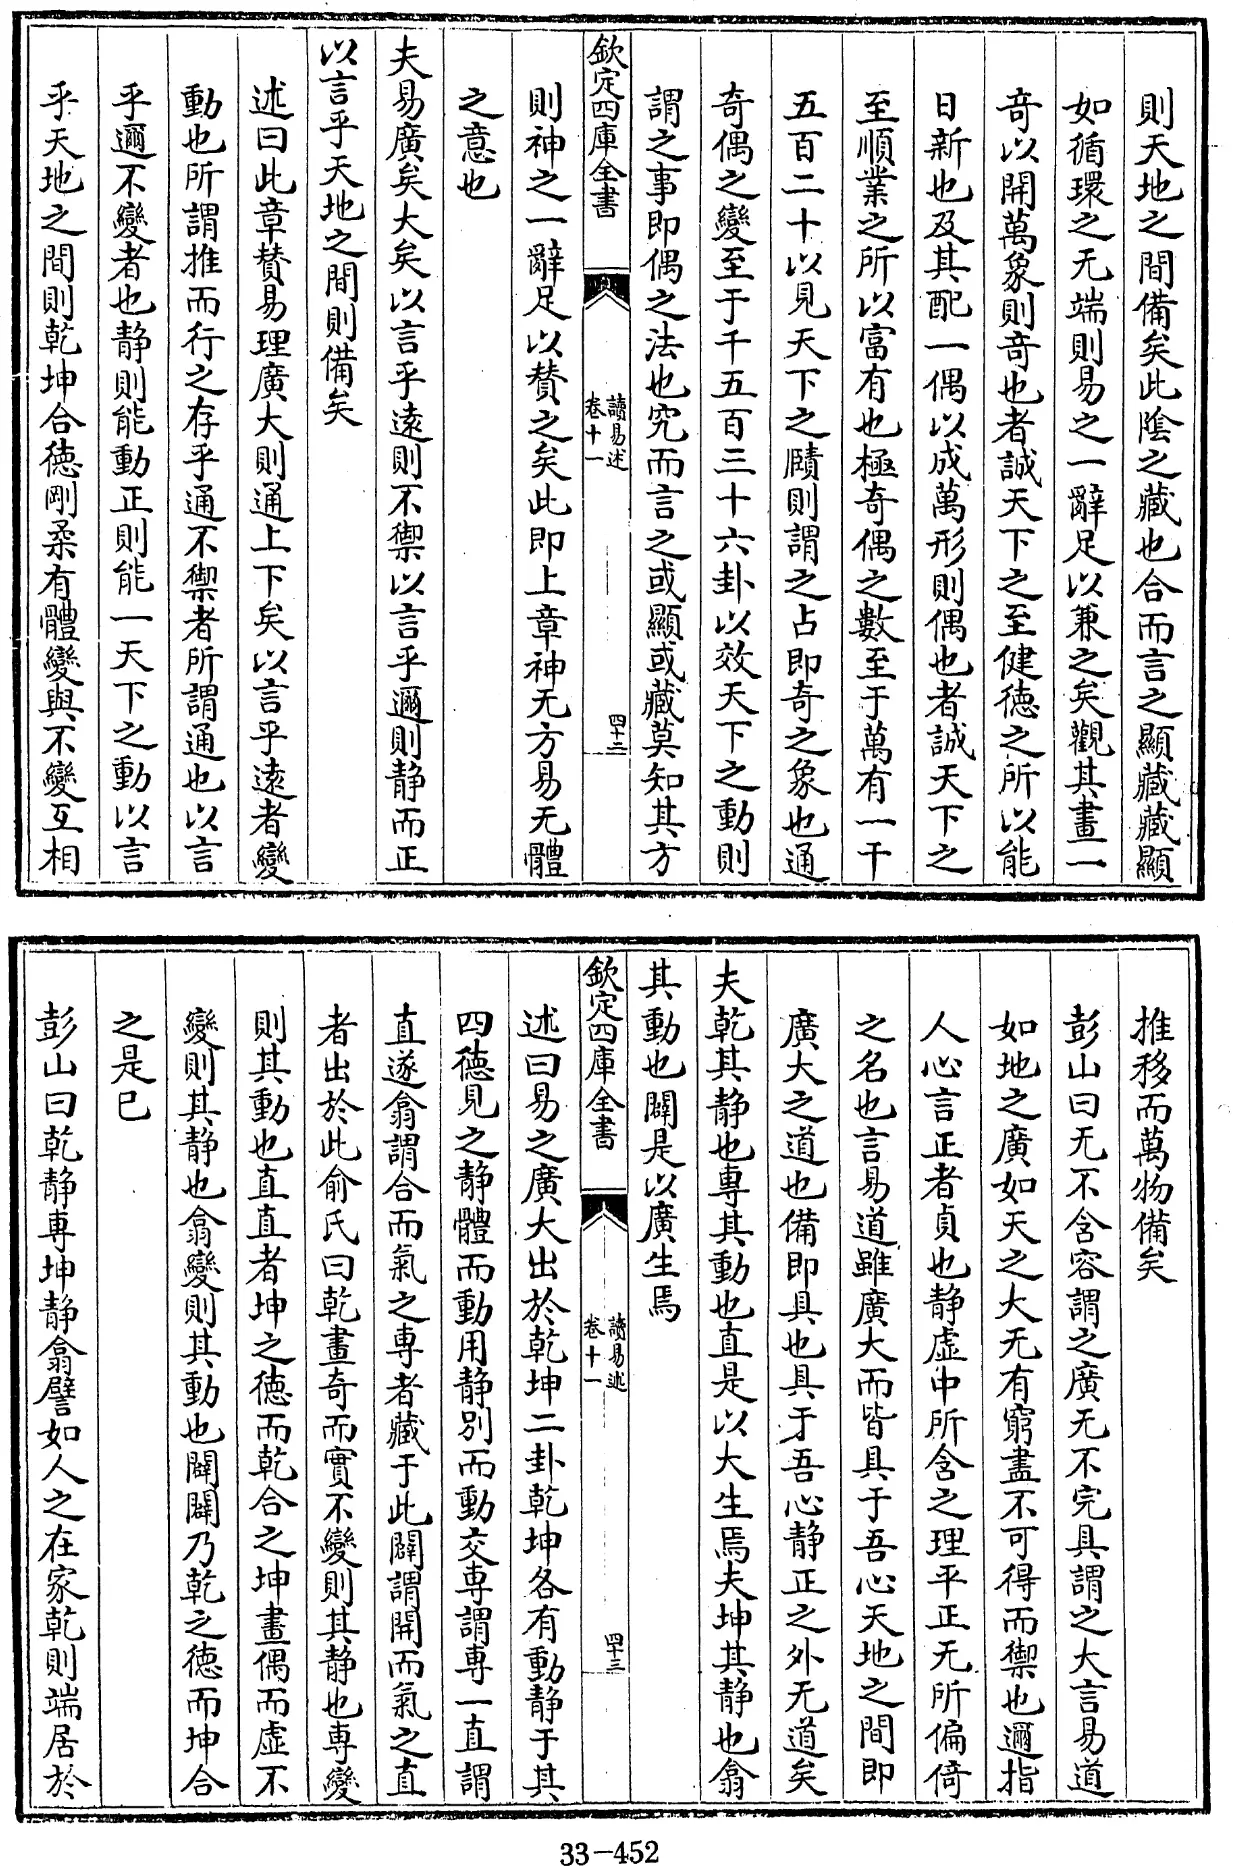 則天地之間備矣此陰之藏也合而言之顯藏藏顯
如循環之无端則易之一辭足以兼之矣觀其畫一
奇以開萬象則奇也者誠天下之至健德之所以能
日新也及其配一偶以成萬形則偶也者誠天下之
至順業之所以富有也極奇偶之數至于萬有一千
五百二十以見天下之賾則謂之占即奇之象也通
奇偶之變至于千五百三十六卦以效天下之動則
謂之事即偶之法也究而言之或顯或藏莫知其方
欽定四庫全書
讀易述
卷十一
四十二
則神之一辭足以賛之矣此即上章神无方易无體
之意也
夫易廣矣大矣以言乎遠則不禦以言乎邇則静而正
以言乎天地之間則備矣
述曰此章賛易理廣大則通上下矣以言乎遠者變
動也所謂推而行之存乎通不禦者所謂通也以言
乎邇不變者也静則能動正則能一天下之動以言
乎天地之間則乾坤合德剛柔有體變與不變互相
推移而萬物備矣
彭山曰无不含容謂之廣无不完具謂之大言易道
如地之廣如天之大无有窮盡不可得而禦也邇指
人心言正者貞也静虚中所含之理平正无所偏倚
之名也言易道雖廣大而皆具于吾心天地之間即
廣大之道也備即具也具于吾心静正之外无道矣
夫乾其静也專其動也直是以大生焉夫坤其静也翕
其動也闢是以廣生焉
欽定四庫全書
讀易述
卷十一
四十三
述曰易之廣大出於乾坤二卦乾坤各有動静于其
四德見之静體而動用静別而動交專謂專一直謂
直遂翕謂合而氣之專者藏于此闢謂開而氣之直
者出於此俞氏曰乾畫奇而實不變則其静也專變
則其動也直直者坤之德而乾合之坤畫偶而虚不
變則其静也翕變則其動也闢闢乃乾之德而坤合
之是已
彭山曰乾静專坤静翕譬如人之在家乾則端居於
33-452